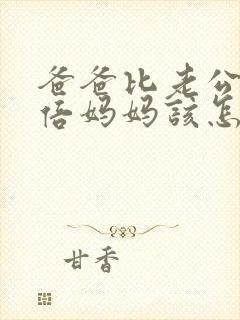 爸爸比老公
倍妈妈該怎
甘香